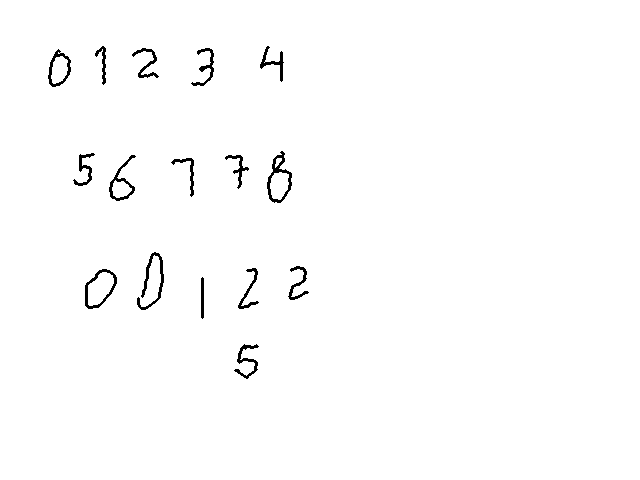 0 1 2 3 4
5 6 7 7 8
0 0 1 2 2
5